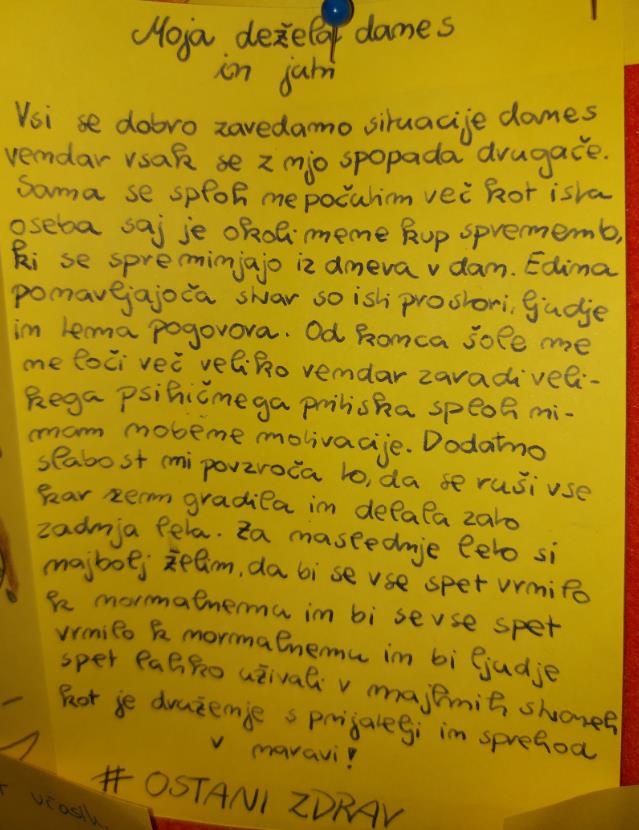 Moja dežela danes
in jutri
Vsi se dobro zavedamo situacije danes
vendar vsak se z njo spopada drugače.
Sama se sploh ne počutim več kot ista
oseba saj je okoli mene kup sprememb,
ki se spreminjajo iz dneva v dan. Edina
ponavljajoča stvar so isti prostori, ljudje
in tema pogovora. Od konca šole me
ne loči več veliko vendar zaradi veli-
kega psihičnega pritiska sploh ni-
mam nobene motivacije. Dodatno
slabost mi povzroča to, da se ruši vse
kar sem gradila in delala zato
zadnja leta. Za naslednje leto si
najbolj želim, da bi se vse spet vrnilo
k normalnemu in bi se vse spet
vrnilo k normalnemu in bi ljudje
spet lahko uživali v majhnih stvareh
kot je druženje s prijatelji in sprehod
v naravi!
# OSTANI ZDRAV
včasih